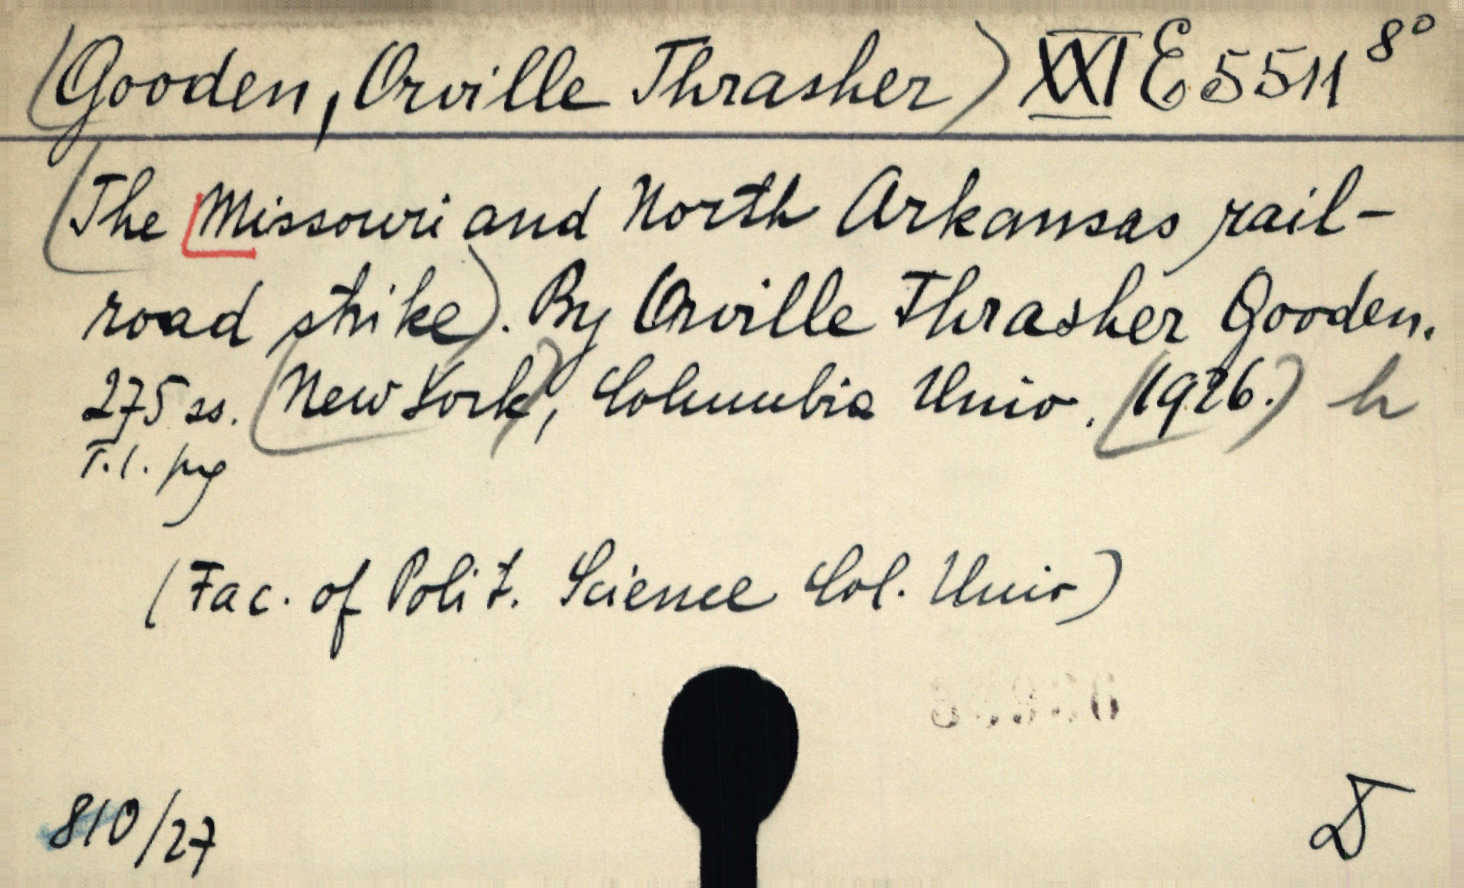 (Gooden, Orville Thrasher) XXI E 5511 8°
(The Missouri and North Arkansas rail-
road strike). By Orville Thrasher Gooden.
275 ss. (New York), Columbia Univ. (1926.) h
T.l. jng
(Fac. of Polit. Science Col. Univ)
810/27
D